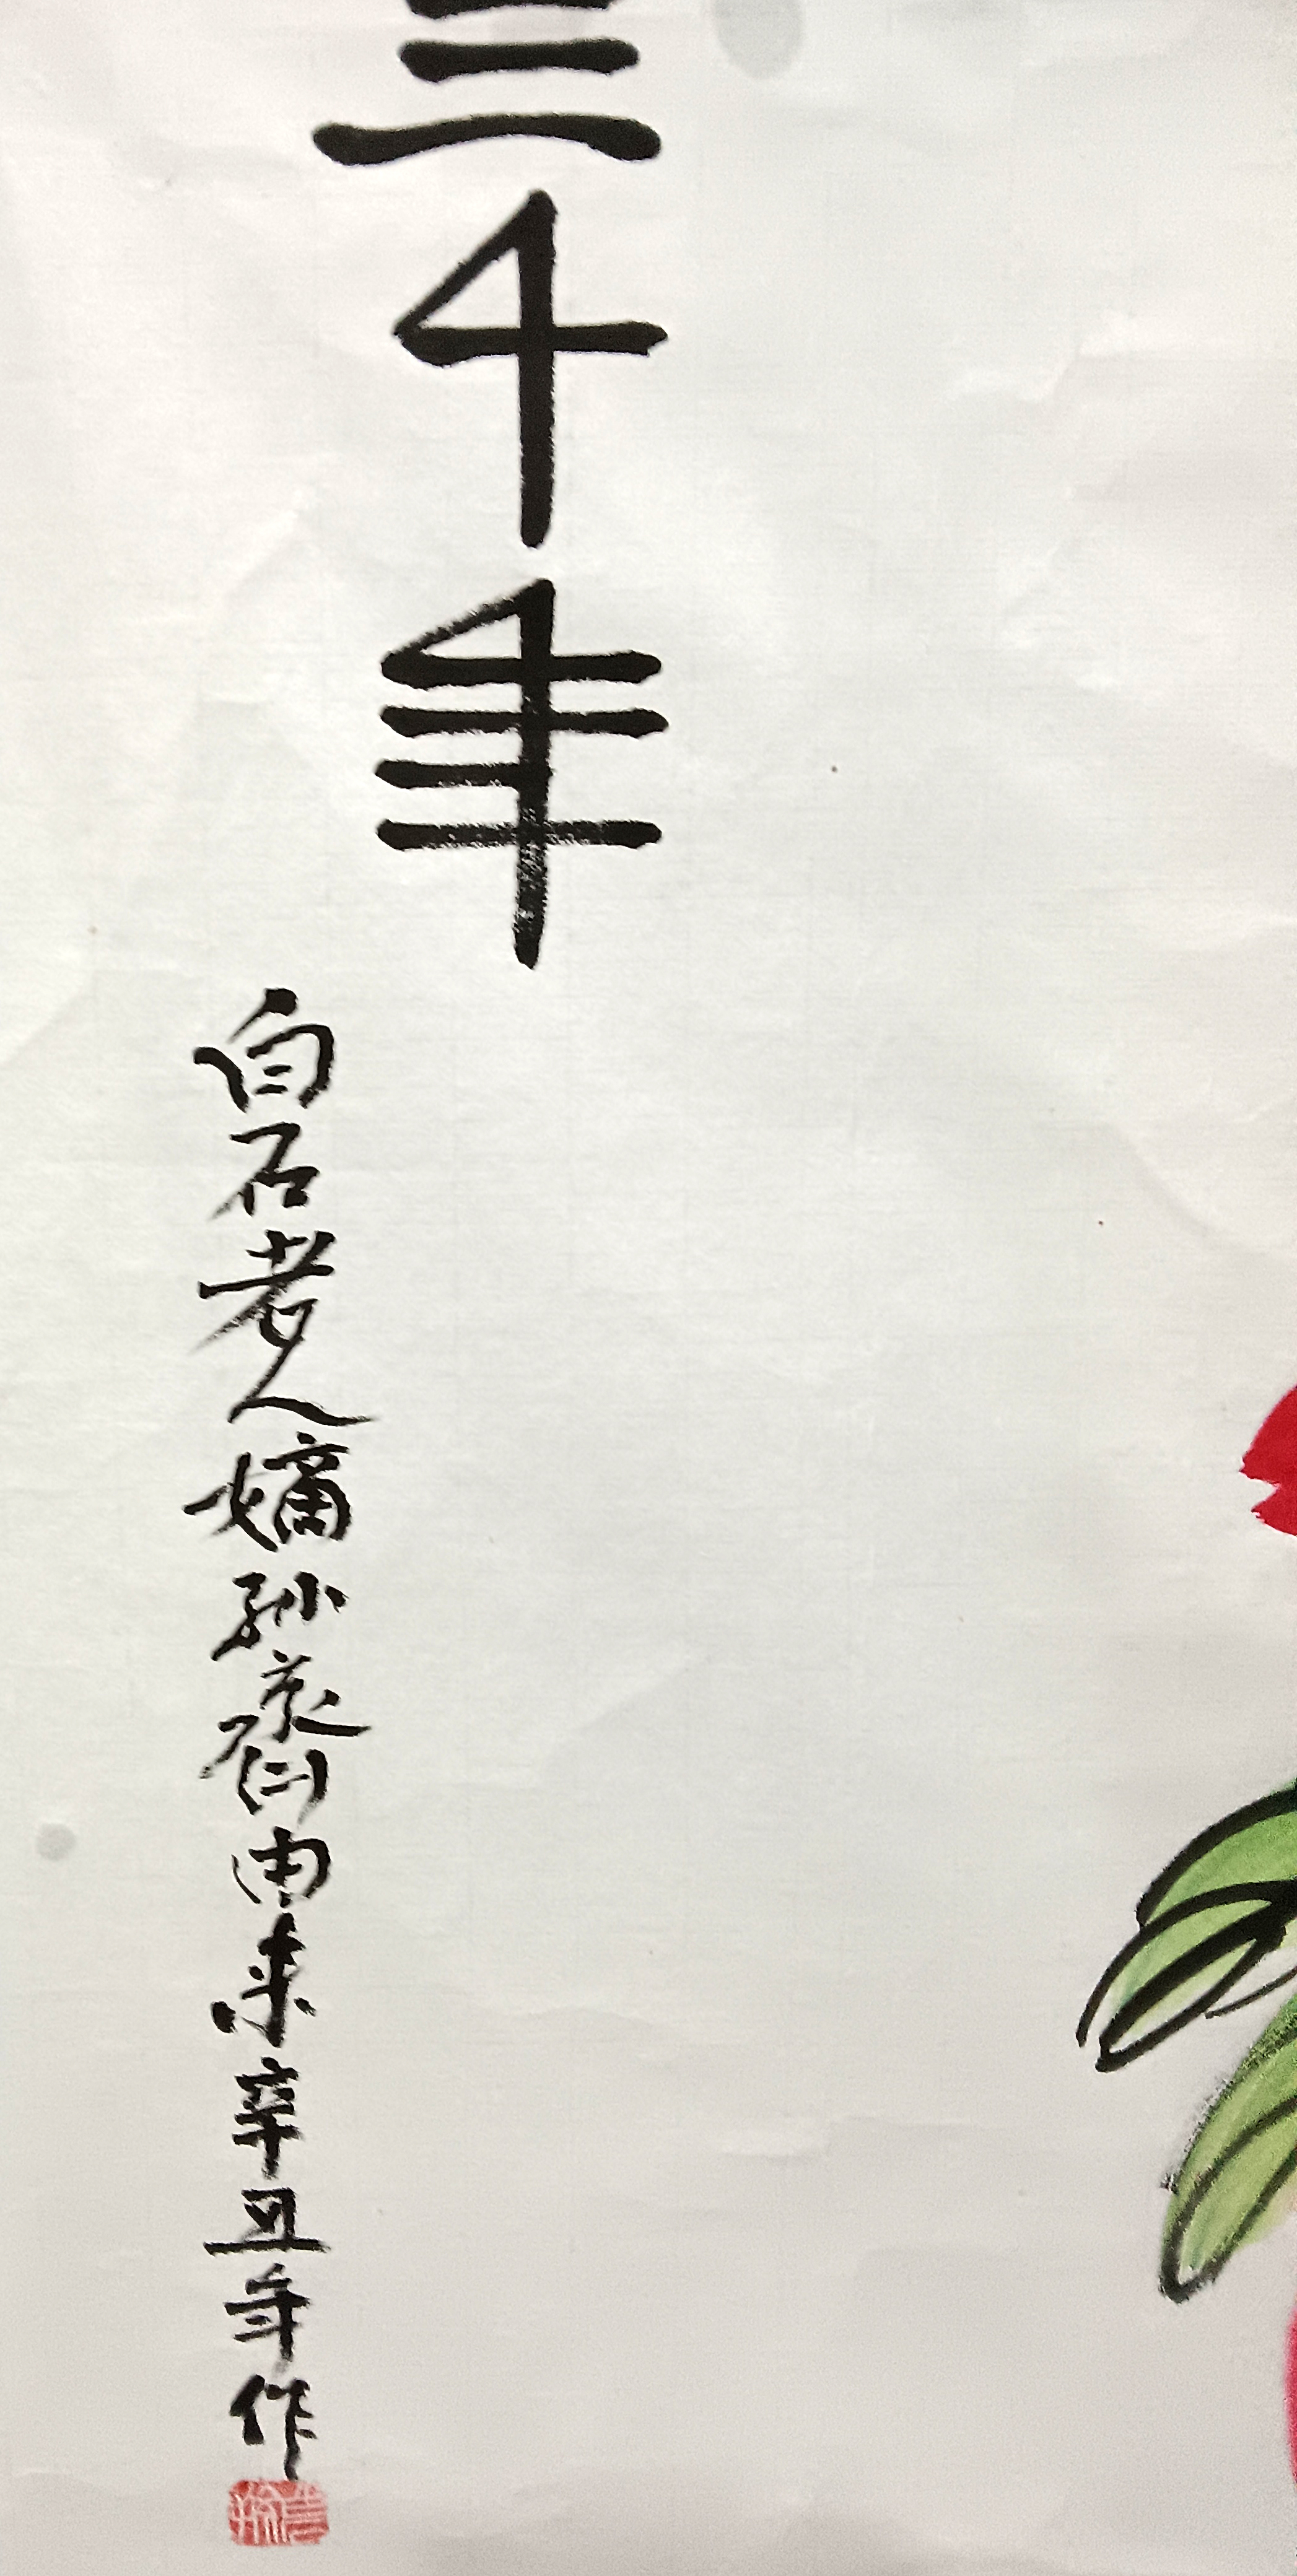 三千年
白石老人嫡孙齐由来辛丑年作